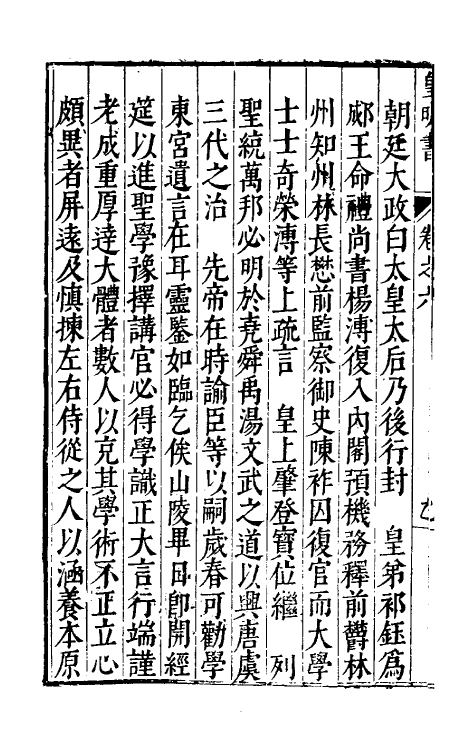 皇明書 卷之六
朝廷大政白太皇太后乃後行封 皇弟祁鈺爲
郕王命禮尚書楊溥復入內閣預機務釋前欝林
州知州林長懋前監察御史陳祚囚復官而大學
士士奇榮溥等上疏言 皇上肇登寶位繼 列
聖統萬邦必明於堯舜禹湯文武之道以興唐虞
三代之治 先帝在時諭臣等以嗣歲春可勸學
東宮遺言在耳靈鍳如臨乞俟山陵畢日卽開經
筵以進聖學豫擇講官必得學識正大言行端謹
老成重厚達大體者數人以克其學術不正立心
頗異者屏遠及慎揀左右侍從之人以涵養本原